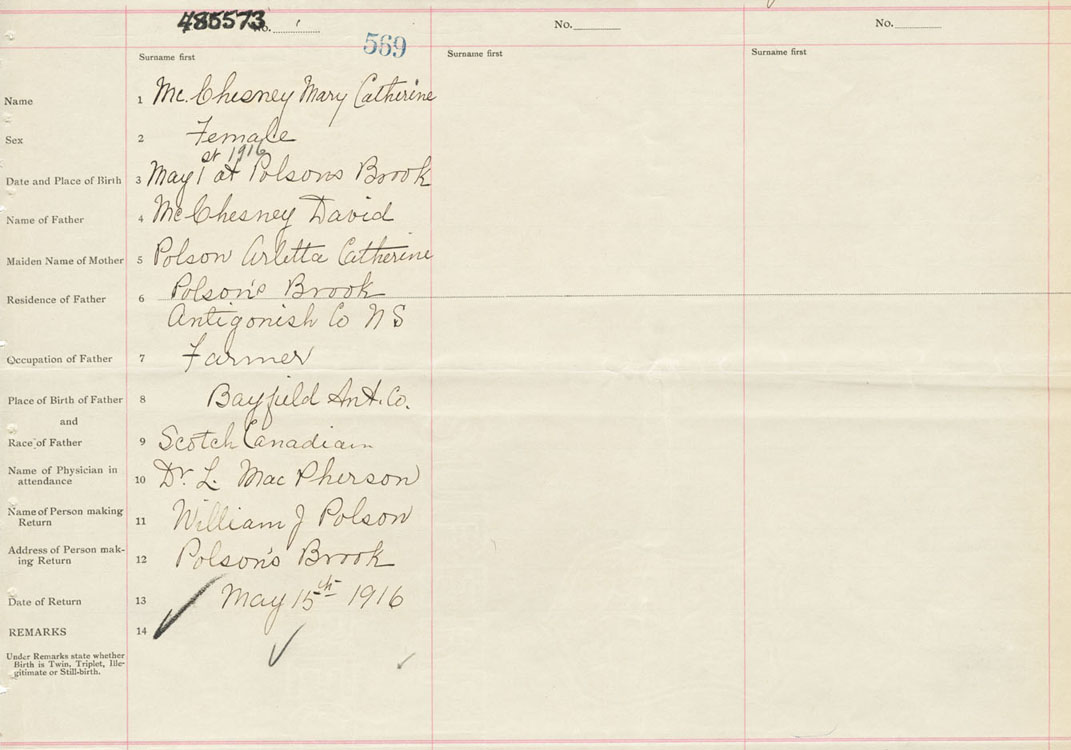 485573
No.
569
Surname first
No.
Surname first
No.
Surname first
Name 1 Mc. Chesney Mary Catherine
Sex 2 Female
st 1916
Date and Place of Birth 3 May 1 at Polsons Brook
Name of Father 4 McChesney David
Maiden Name of Mother 5 Polson Arletta Catherine
Residence of Father 6 Polson's Brook
Antigonish Co N S
Occupation of Father 7 Farmer
Place of Birth of Father 8 Bayfield Ant. Co.
and
Race of Father 9 Scotch Canadian
Name of Physician in
attendance 10 Dr. L. MacPherson
Name of Person making
Return 11 William J Polson
Address of Person mak-
ing Return 12 Polson's Brook
Date of Return 13 May 15th 1916
REMARKS 14
Under Remarks state whether
Birth is Twin, Triplet, Ille-
gitimate or Still-birth.